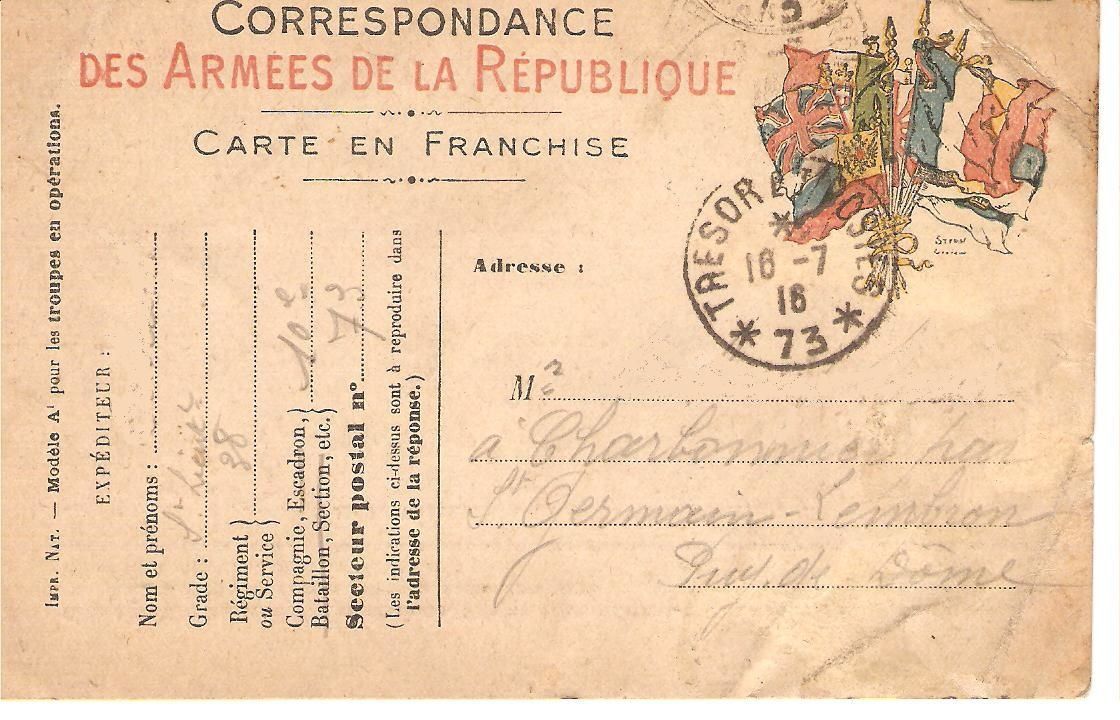 CORRESPONDANCE
DES ARMÉES DE LA RÉPUBLIQUE
CARTE EN FRANCHISE
IMPR. NAT. — Modèle A¹ pour les troupes en opérations.
EXPÉDITEUR :
Nom et prénoms :
Grade : Sᵗ Lieut
Régiment
ou Service } 38
Compagnie, Escadron,
Bataillon, Section, etc. } 10e
Secteur postal n° 73
(Les indications ci-dessus sont à reproduire dans
l'adresse de la réponse.)
Adresse :
TRESOR ET POSTES
16 -7
16
* 73 *
M
a Charbonnier
St Germain-Lembron
Puy de Dôme